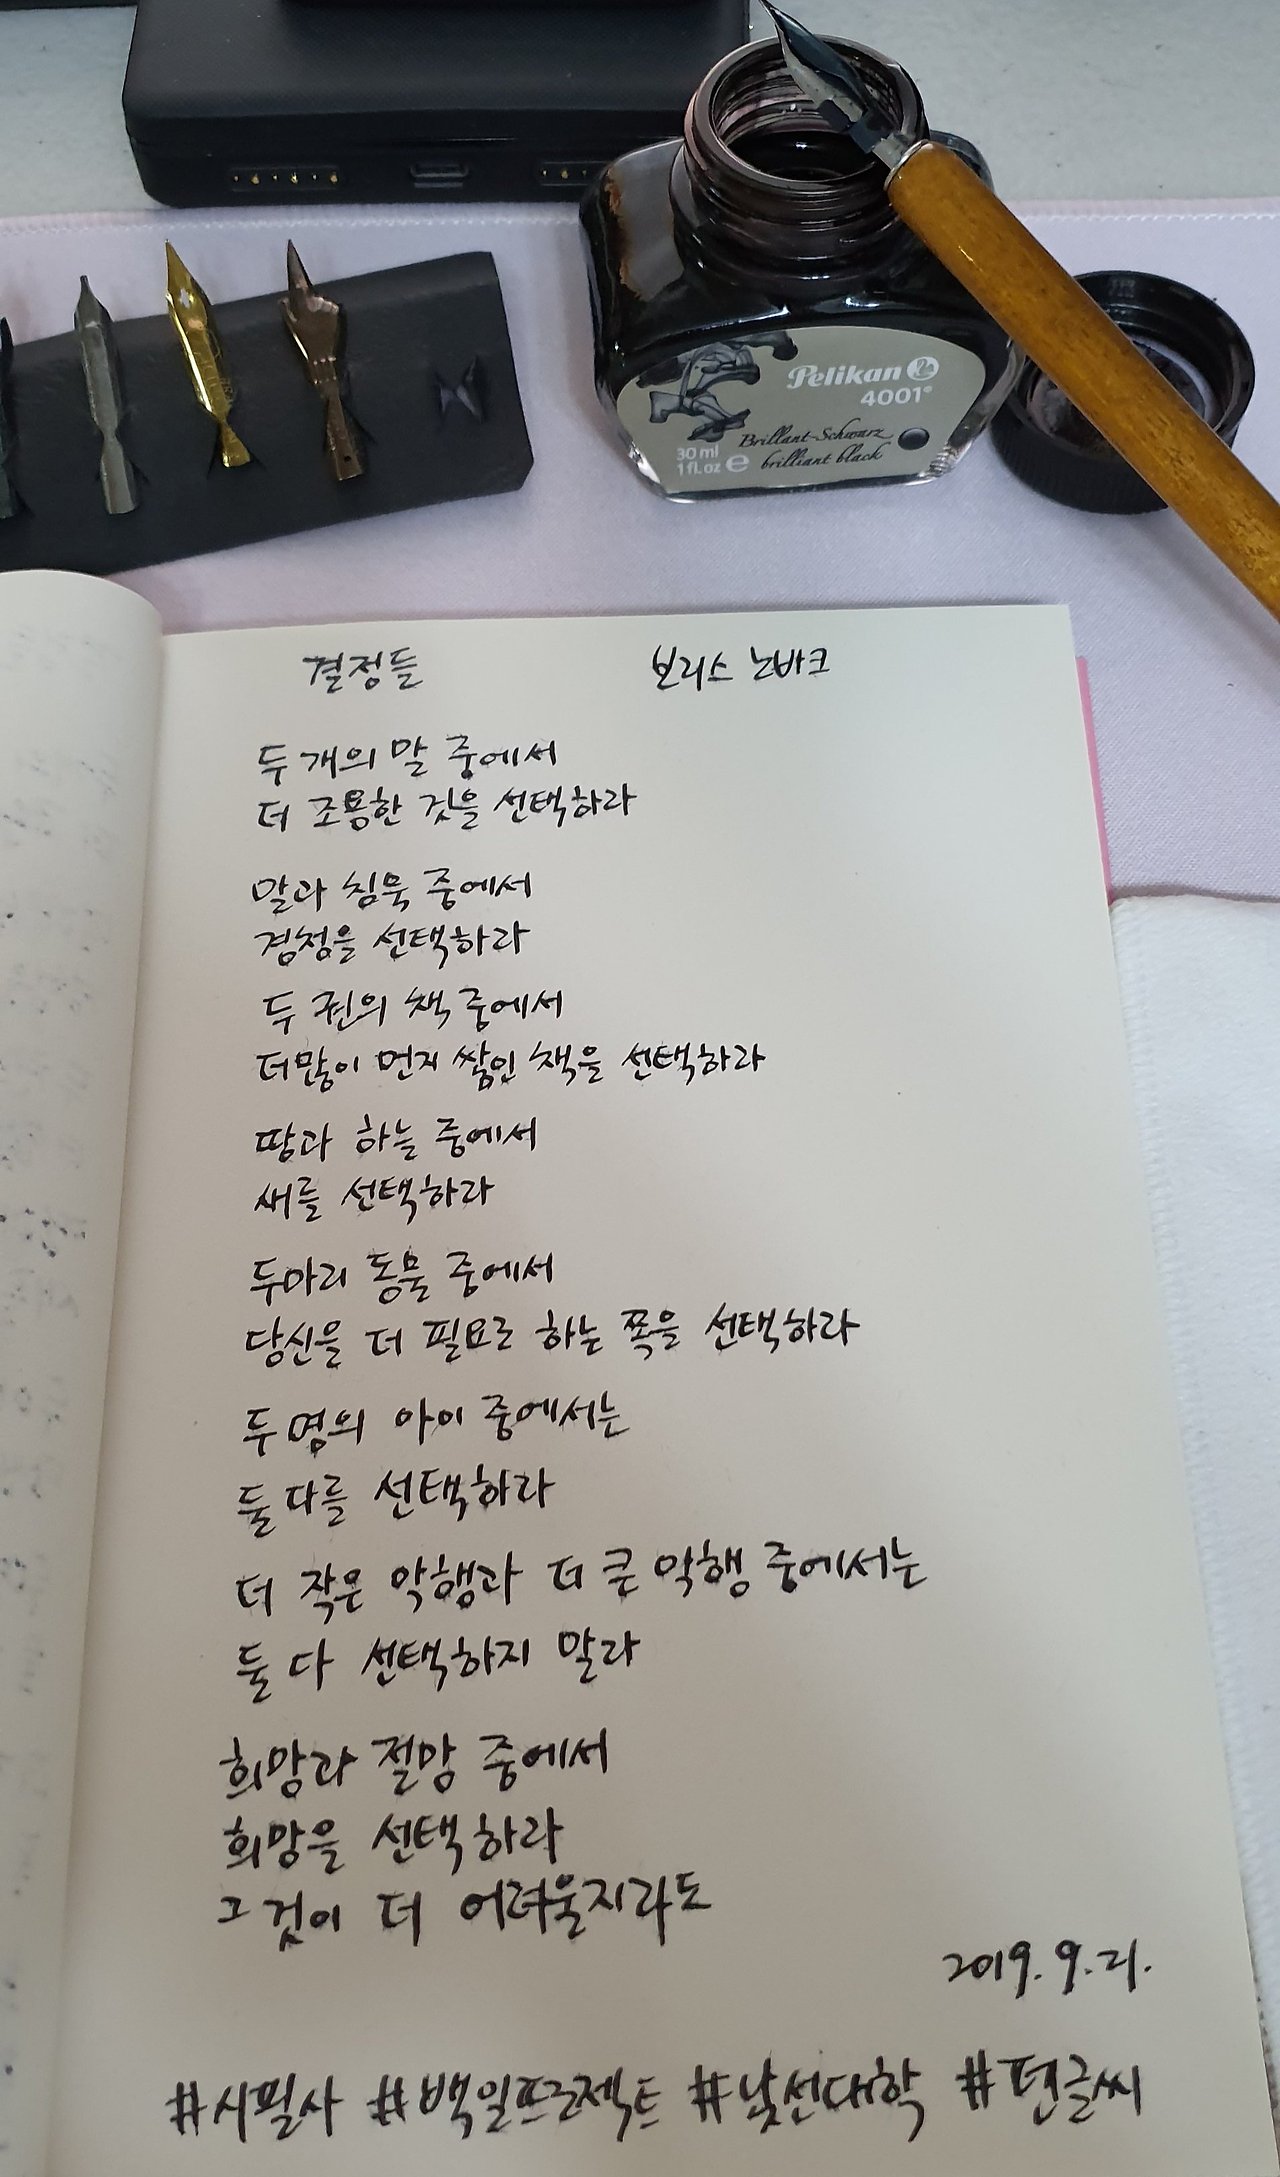 Pelikan
4001®
Brillant-Schwarz
brilliant black
30 ml
1 fl. oz e
결정들 보리스 노바크
두 개의 말 중에서
더 조용한 것을 선택하라
말과 침묵 중에서
경청을 선택하라
두 권의 책 중에서
더 많이 먼지 쌓인 책을 선택하라
땅과 하늘 중에서
새를 선택하라
두마리 동물 중에서
당신을 더 필요로 하는 쪽을 선택하라
두 명의 아이 중에서는
둘 다를 선택하라
더 작은 악행과 더 큰 악행 중에서는
둘 다 선택하지 말라
희망과 절망 중에서
희망을 선택하라
그것이 더 어려울지라도
2019. 9. 21.
#시필사 #백일프로젝트 #낯선대학 #펜글씨